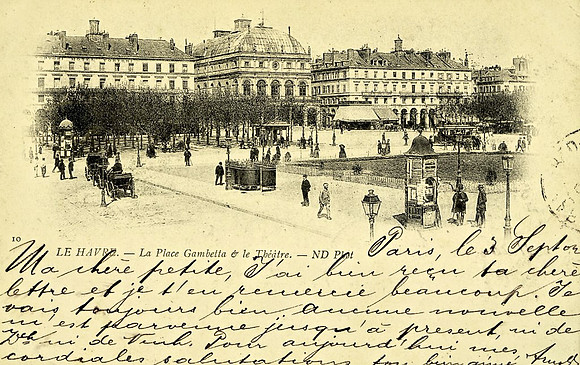 10
LE HAVRE. — La Place Gambetta & le Théâtre. — ND Phot
Paris, le 3 Sept
Ma chère petite, J'ai bien reçu ta chère
lettre et je t'en remercie beaucoup. Je
vais toujours bien. Aucune nouvelle
m'est parvenue jusqu'à présent, ni de
ni de Pour aujourd'hui mes
cordiales salutations ton bien aimé Arnold